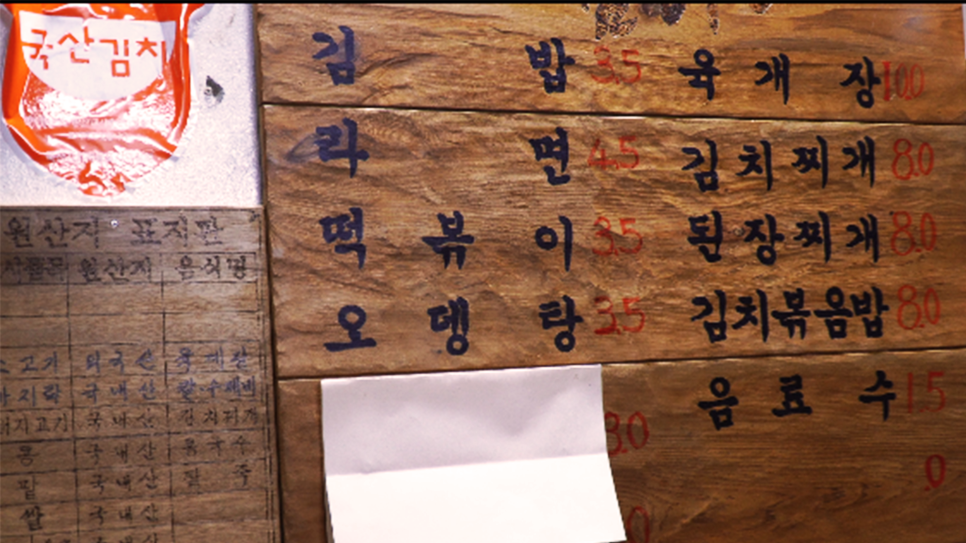 국산김치
김밥 3.5
라면 4.5
떡볶이 3.5
오뎅탕 3.5
3.0
0
육개장 10.0
김치찌개 8.0
된장찌개 8.0
김치볶음밥 8.0
음료수 1.5
0
원산지 표지판
원산지 음식명
소고기 외국산 육개장
바지락 국내산 칼수제비
돼지고기 국내산 김치찌개
콩 국내산 콩국수
팥 국내산 팥죽
쌀 국내산
국내산